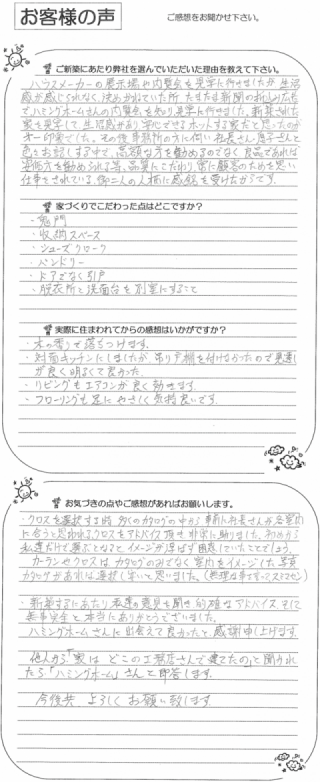 お客様の声
ご感想をお聞かせ下さい。
ご新築にあたり弊社を選んでいただいた理由を教えて下さい。
ハウスメーカーの展示場や内覧会を見学に行きましたが 生活
感が感じられなく 決めかねていた所 たまたま新聞の折り込み広告
でハミングホームさんの内覧会を知り見学に行きました。新築された
家を見学して 生活感があり 実にできるホッとする家だと思ったのが
オ一印象でした。その後 事務所の方に伺い 社長さん 息子さんと
色々お話しする中で、高額な方を勧めるのでなく 良品であれば
安価な方を勧められる等、品質にこだわり 常に顧客のためを思い
仕事をされている。御二人の人柄に感銘を受けたからです。
家づくりでこだわった点はどこですか?
・鬼門
・収納スペース
・シューズクローク
・パントリー
・ドアでなく引戸
・脱衣所と洗面台を別室にすること
実際に住まわれてからの感想はいかがですか?
・木の香りで落ちつけます。
・対面キッチンにしましたが 吊り戸棚を付けなかったので見通し
が良く 明るくて良かった。
・リビングも エアコンが良く効きます。
・フローリングも 足に やさしく 気持良いです。
お気づきの点やご感想があればお願いします。
・クロスを選択する時 多くのカタログの中から 事前に社長さんが各室内
に合うと思われるクロスをアドバイス頂き 非常に助りました。初めから
私達だけで選ぶとなると イメージが浮ばず 困惑していたことでしょう。
カーテンやクロスは カタログのみでなく 室内をイメージした写真
カタログがあれば 選択し安いと思いました。
・新築するにあたり 私達の意見も聞き 的確なアドバイス そして
無事完全と 本当にありがとうございました。
ハミングホームさんに 出会えて良かったと、感謝申し上げます。
他人から「家は どこの工務店さんで建てたの」と聞かれ
たら「ハミングホーム」さんと即答します。
今後共 よろしく お願い致します。